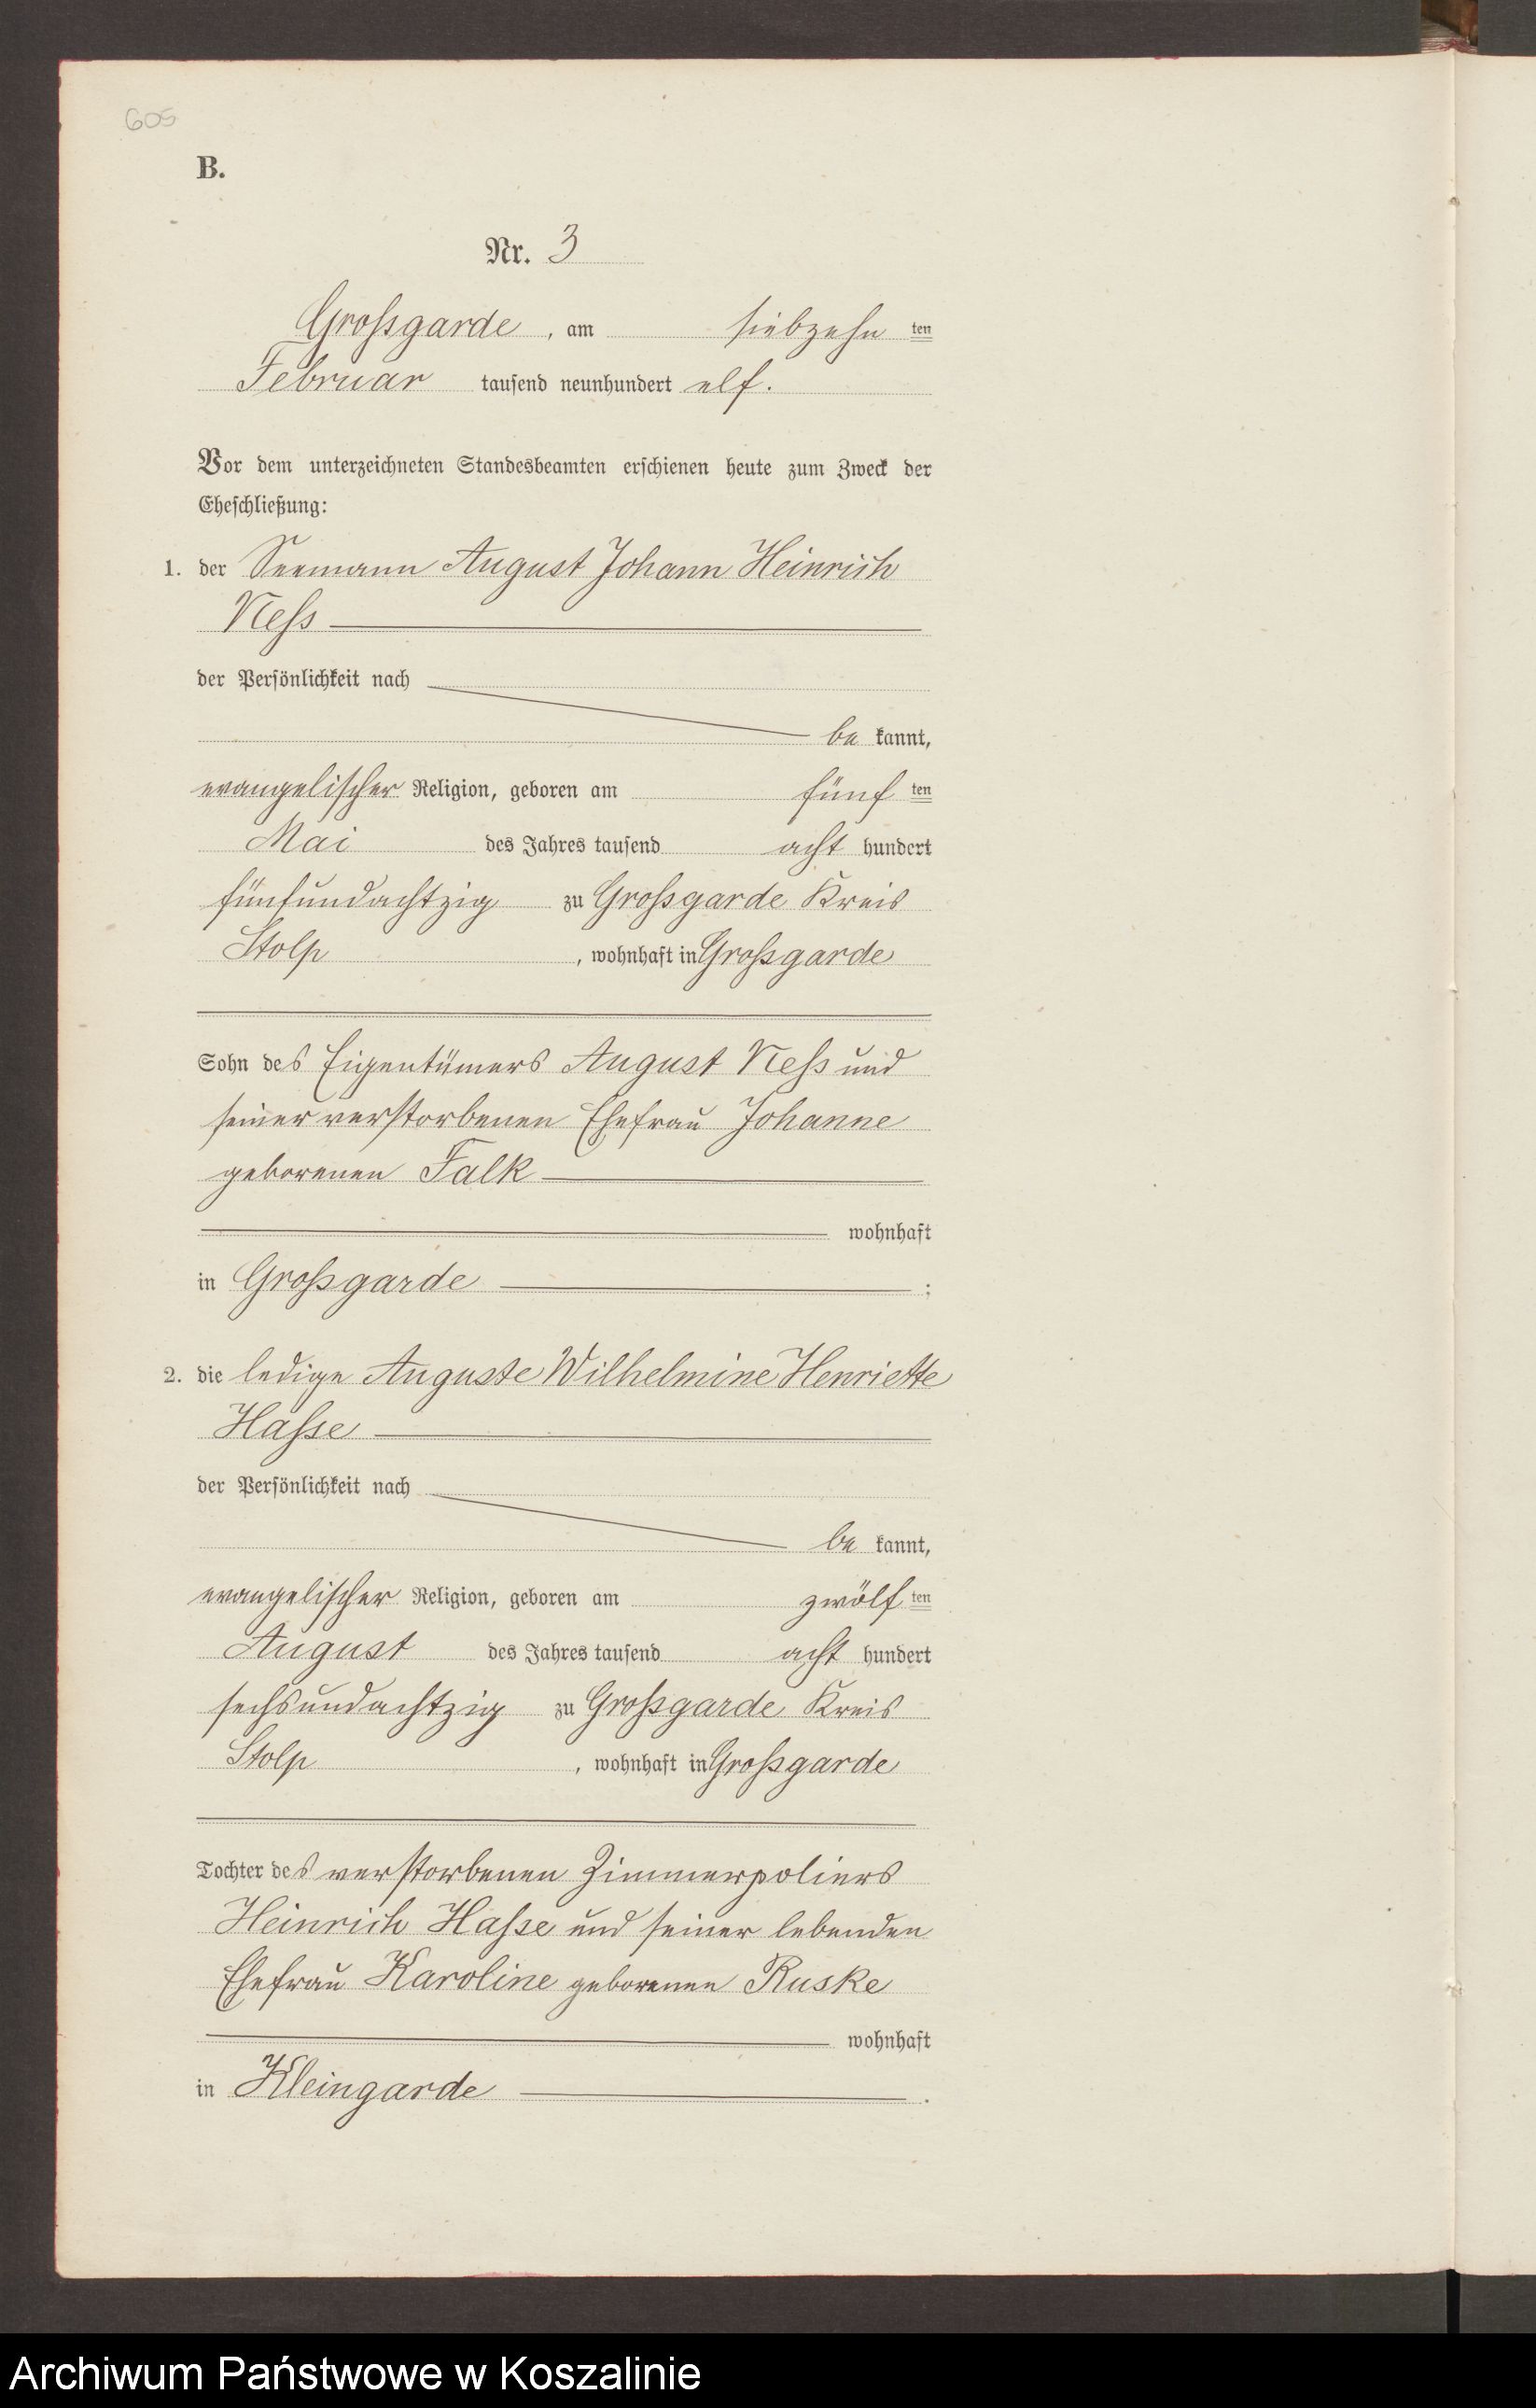 605
B.
Nr. 3
Grossgarde, am siebzehn ten
Februar tausend neunhundert elf.
Vor dem unterzeichneten Standesbeamten erschienen heute zum Zweck der
Eheschließung:
1. der Seemann August Johann Heinrich
Ness
der Persönlichkeit nach
be kannt,
evangelischer Religion, geboren am fünf ten
Mai des Jahres tausend acht hundert
fünfundachtzig zu Grossgarde Kreis
Stolp, wohnhaft in Grossgarde
Sohn des Eigentümers August Ness und
seiner verstorbenen Ehefrau Johanne
geborenen Falk
wohnhaft
in Grossgarde ;
2. die ledige Auguste Wilhelmine Henriette
Hasse
der Persönlichkeit nach
be kannt,
evangelischer Religion, geboren am zwölf ten
August des Jahres tausend acht hundert
sechsundachtzig zu Grossgarde Kreis
Stolp, wohnhaft in Grossgarde
Tochter des verstorbenen Zimmerpoliers
Heinrich Hasse und seiner lebenden
Ehefrau Karoline geborenen Ruske
wohnhaft
in Kleingarde .
Archiwum Państwowe w Koszalinie